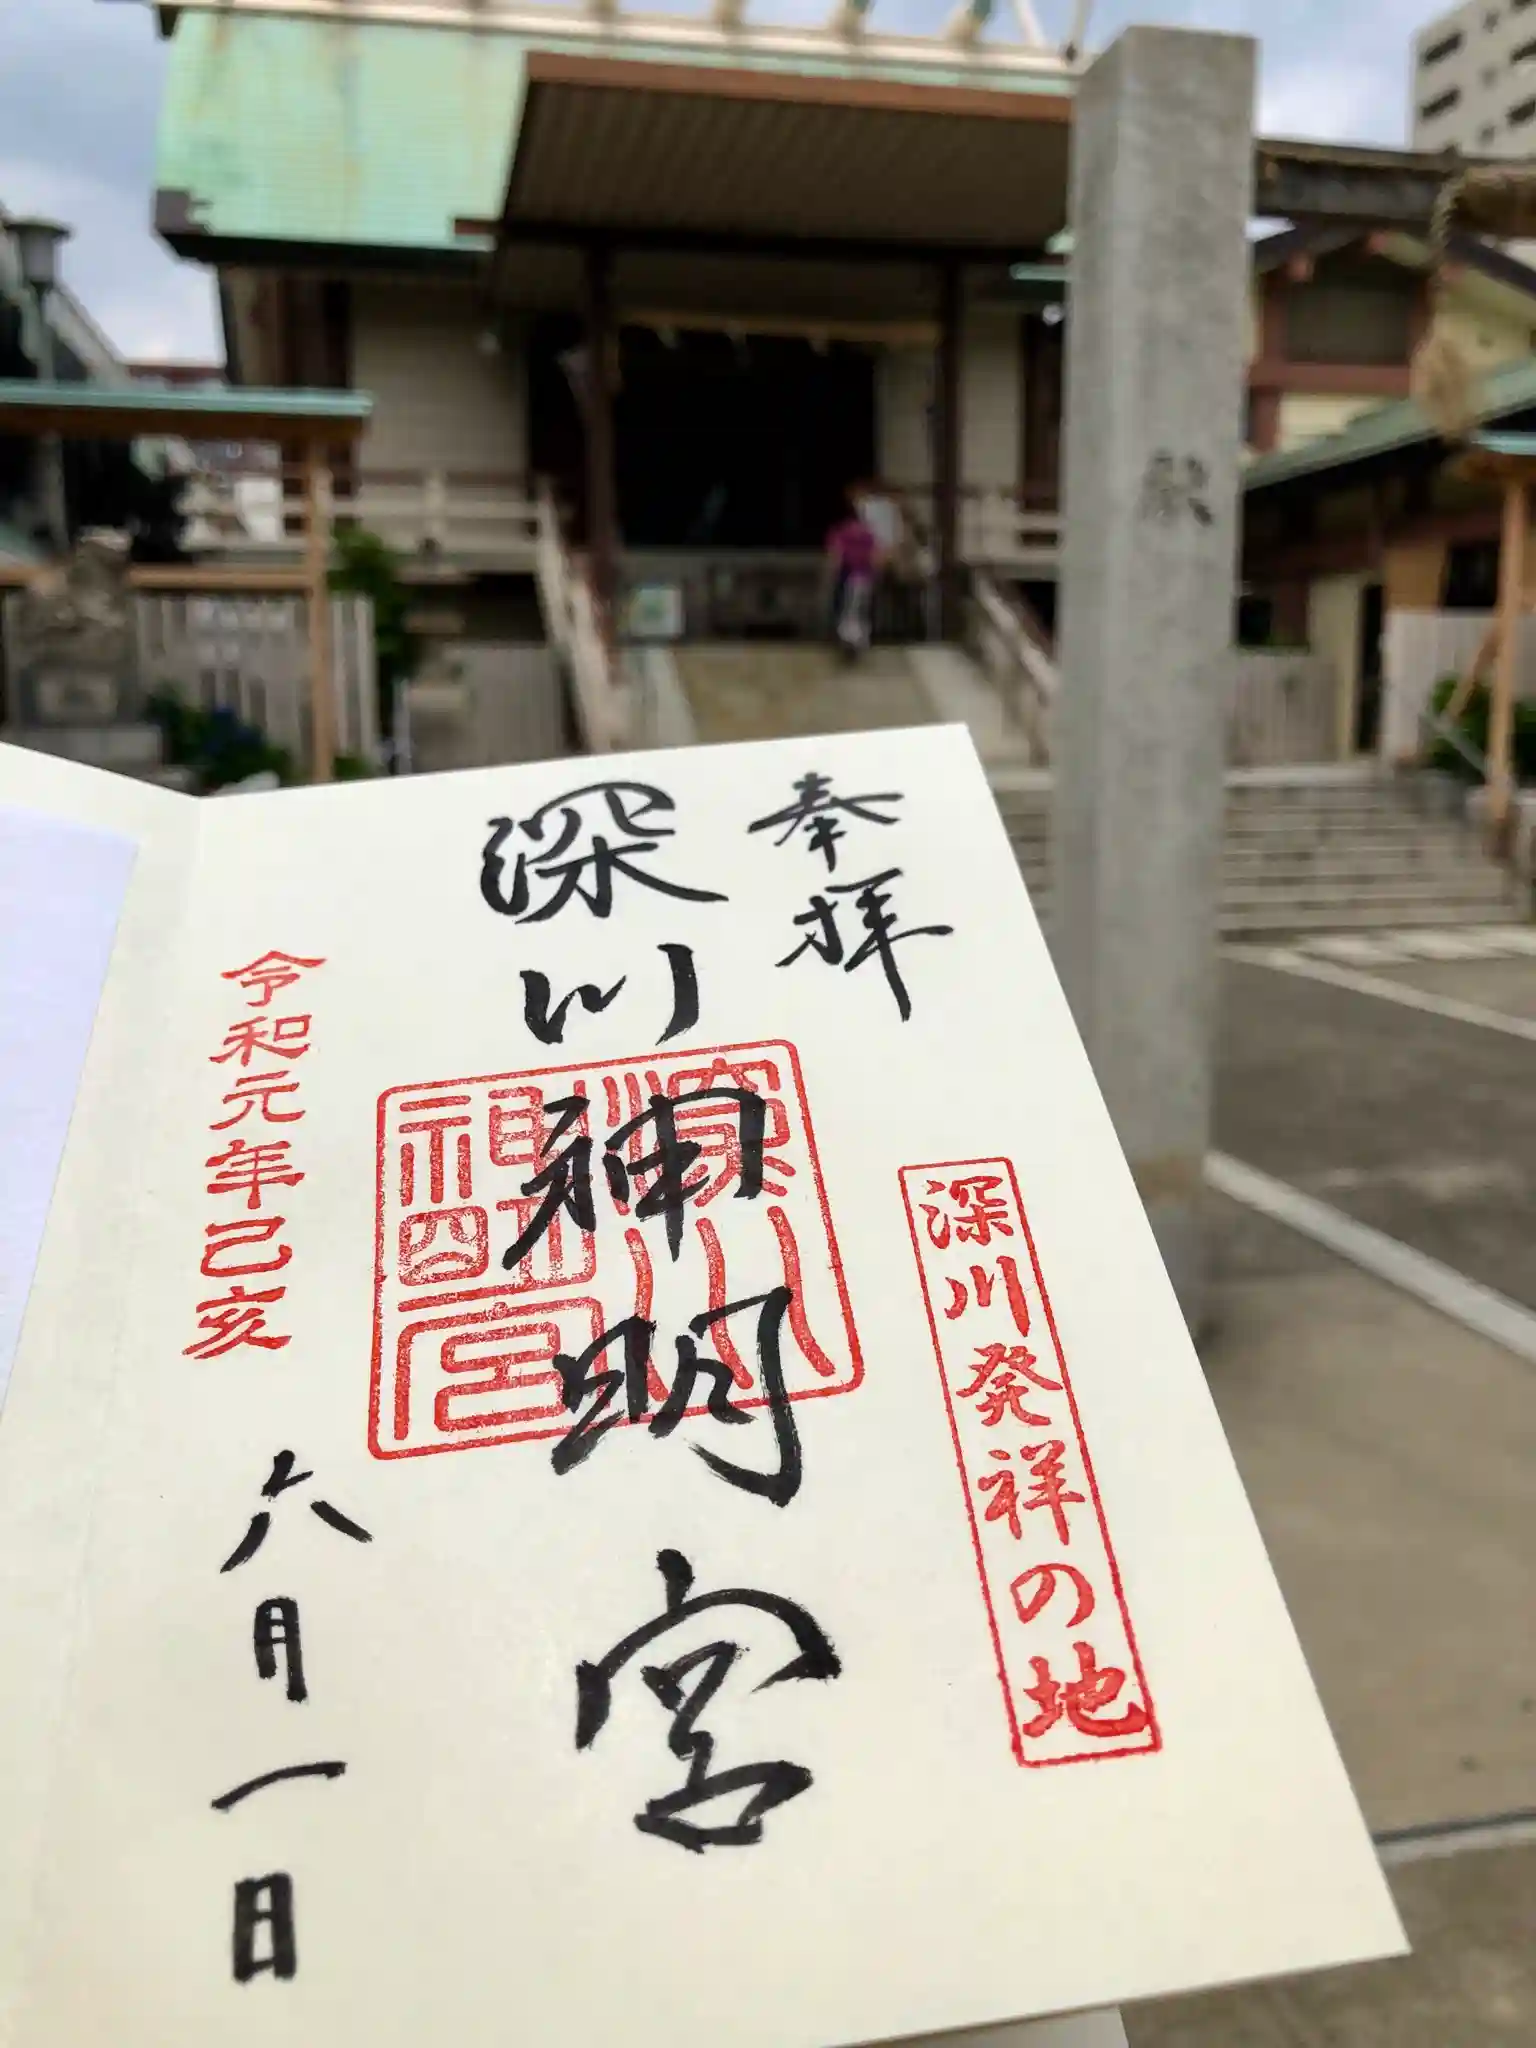 奉拝
深川発祥の地
深川神明宮
深川神明宮
令和元年己亥
六月一日